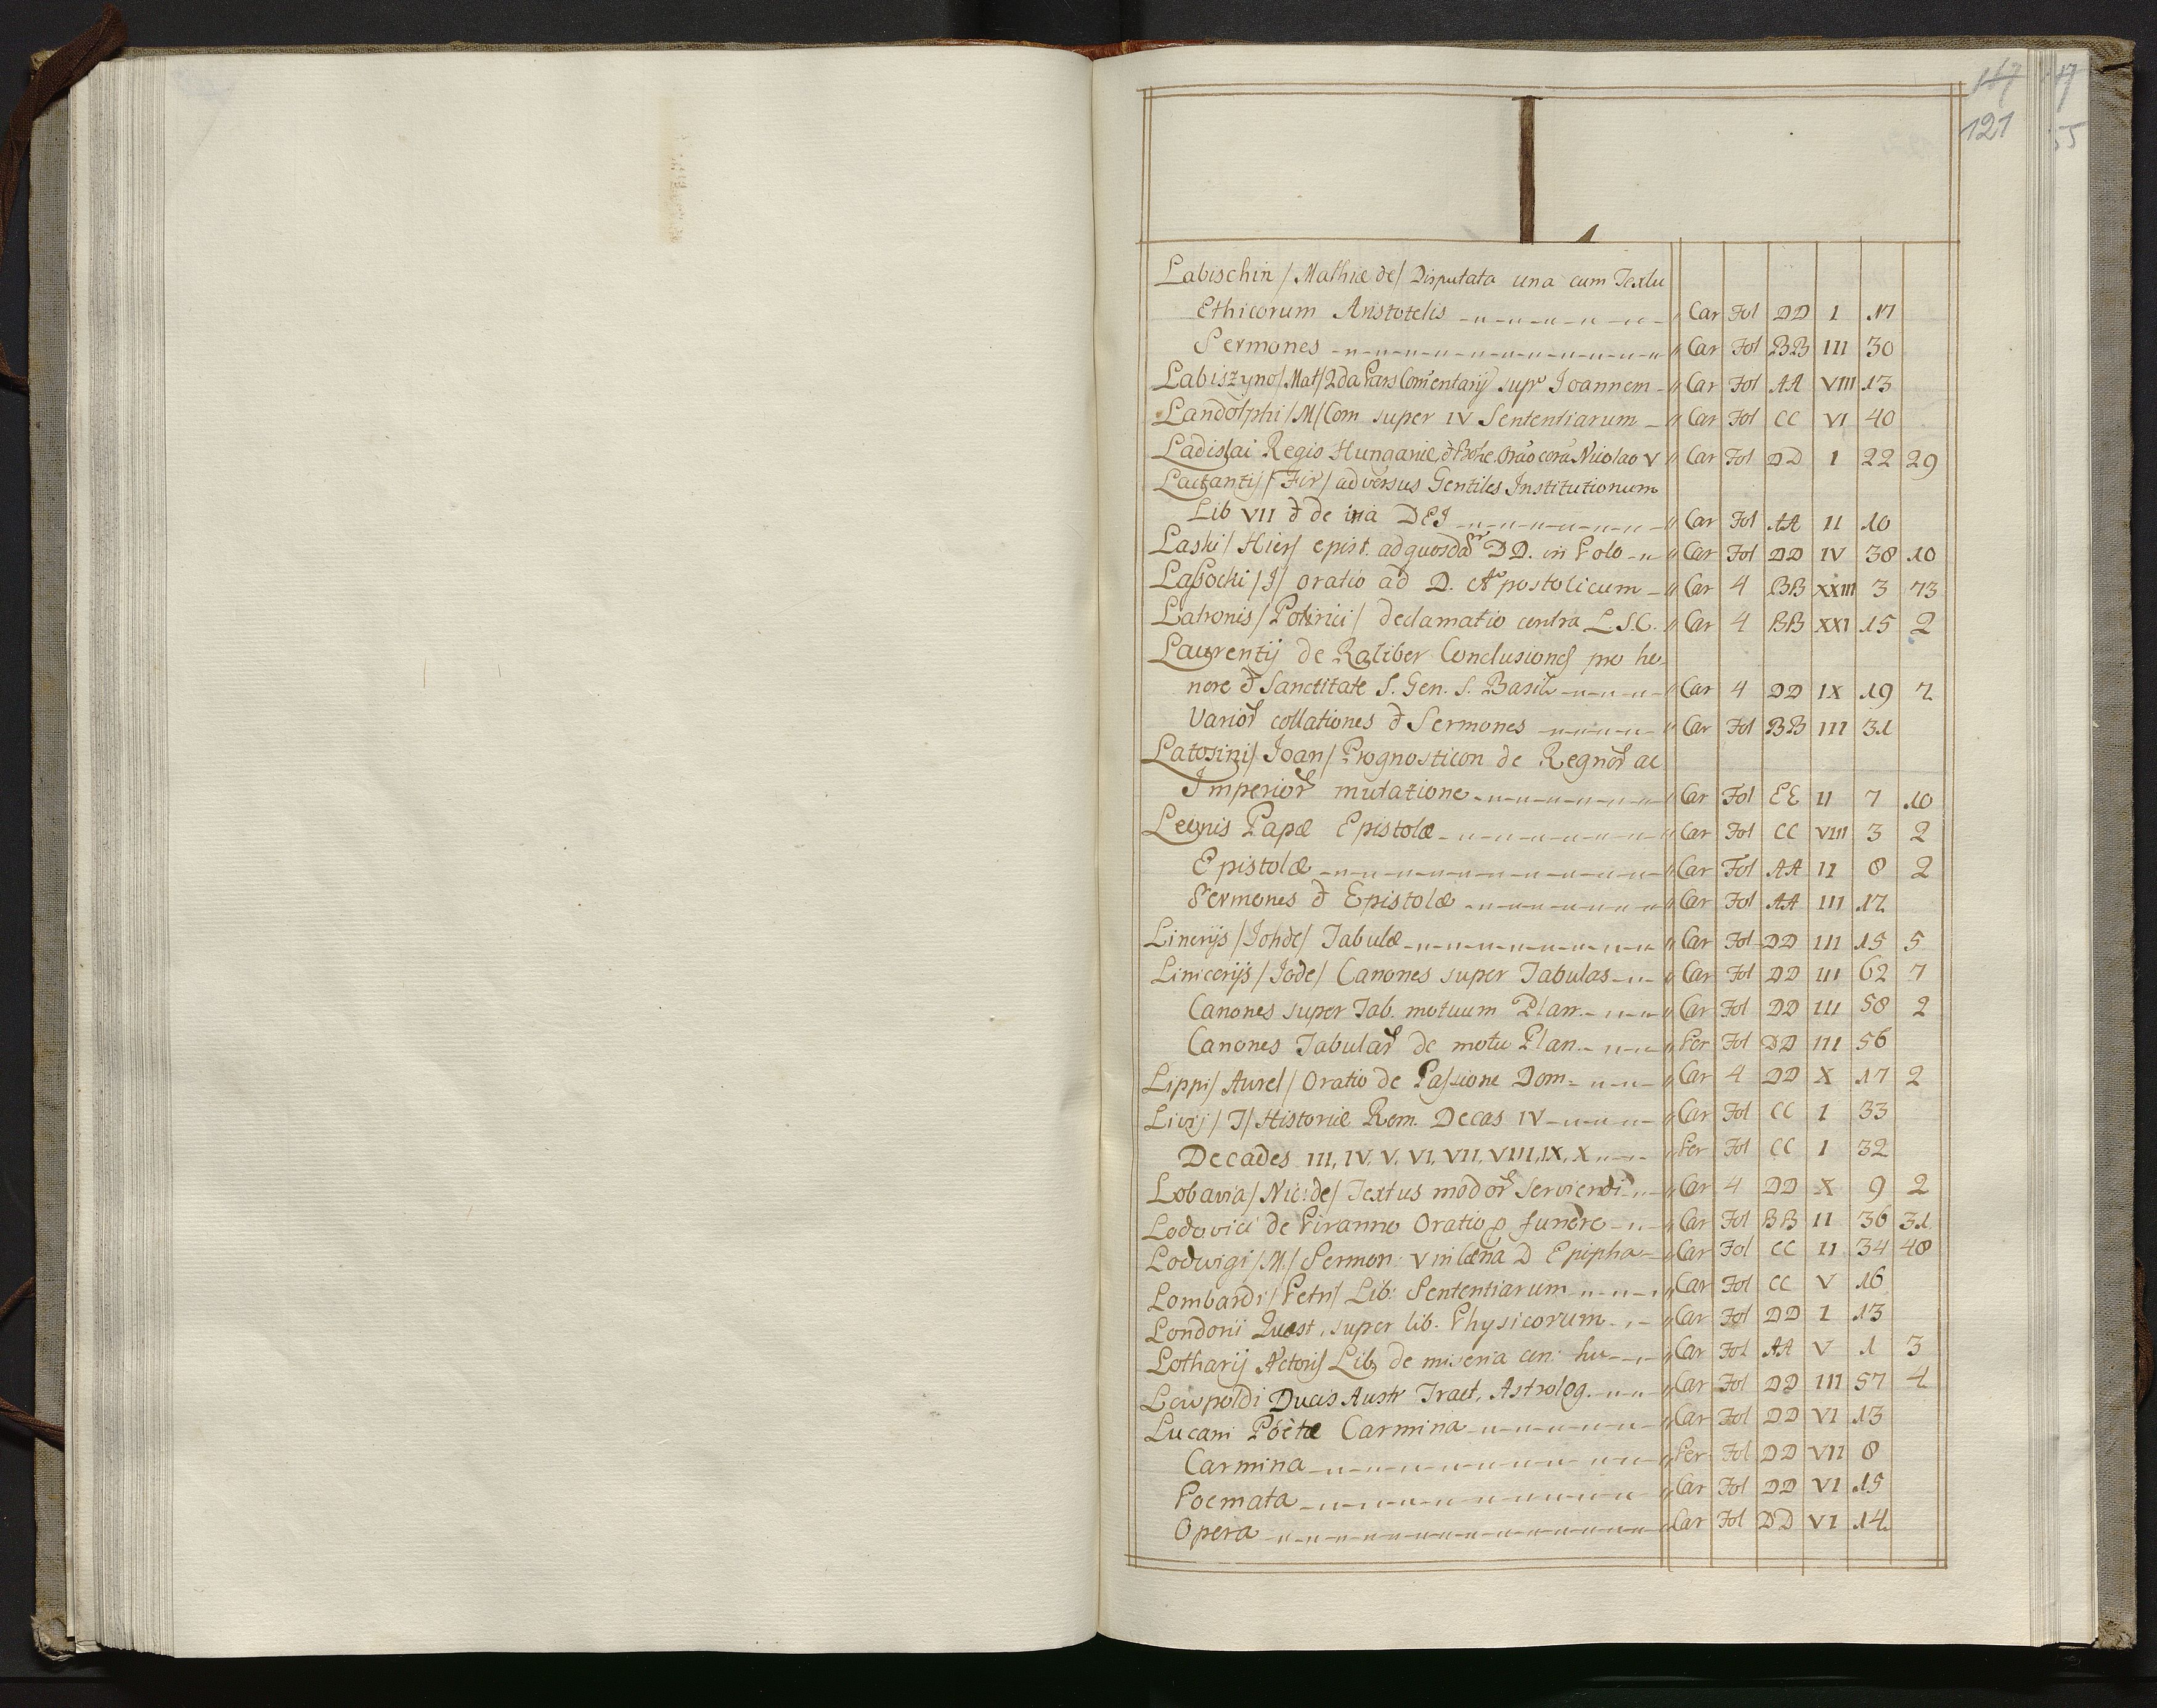 117
121
L
Labischin / Mathiæ de / Disputata una cum Textu
Ethicorum Aristotelis Car Fol DD I 17
Sermones Car Fol BB III 30
Labiszyno / Mat / 2da Pars Comentarij supr Joannem Car Fol AA VIII 13
Landolphi / M / Com super IV Sententiarum Car Fol CC VI 40
Ladislai Regis Hungariæ, & Bohe. Orāo corā Nicolao V Car Fol DD I 22 29
Lactantij / Fir / adversus Gentiles Institutionum
Lib VII & de ira DEI Car Fol AA II 10
Laski / Hier / epist. ad quosdā DD. in Polo Car Fol DD IV 38 10
Lasocki / J / oratio ad D. Apostolicum Car 4 BB XXIII 3 73
Latronis / Potirici / declamatio contra L.S.C. Car 4 BB XXI 15 2
Laurentij de Ratiber Conclusiones pro ho-
nore & Sanctitate S. Gen. S. Basil Car 4 DD IX 19 7
Varior collationes & Sermones Car Fol BB III 31
Latosini / Joan / Prognosticon de Regnor ac
Imperior mutatione Car Fol EE II 7 10
Leonis Papæ Epistolæ Car Fol CC VIII 3 2
Epistolæ Car Fol AA II 8 2
Sermones & Epistolæ Car Fol AA III 17
Linerijs / Joh de / Tabulæ Car Fol DD III 15 5
Linicerijs / Jo de / Canones super Tabulas Car Fol DD III 62 7
Canones super Tab. motuum Plan Car Fol DD III 58 2
Canones Tabular de motu Plan Per Fol DD III 56
Lippi / Aurel / Oratio de Passione Dom Car 4 DD X 17 2
Livij / T / Historiæ Rom. Decas IV Car Fol CC I 33
Decades III, IV, V, VI, VII, VIII, IX, X Per Fol CC I 32
Lobavia / Nic: de / Textus modor Serviendi Car 4 DD X 9 2
Lodovici de Piranno Oratio p funere Car Fol BB II 36 31
Lodwigi / M. / Sermon: V in Cæna D Epipha Car Fol CC II 34 48
Lombardi / Petri / Lib: Sententiarum Car Fol CC V 16
Londorii Quæst. super lib. Physicorum Car Fol DD I 13
Lotharij Lib de miseria con: hu Car Fol AA V 1 3
Lewpoldi Ducis Austr Tract, Astrolog. Car Fol DD III 57 4
Lucani Poëtæ Carmina Car Fol DD VI 13
Carmina Per Fol DD VII 8
Poemata Car Fol DD VI 15
Opera Car Fol DD VI 14